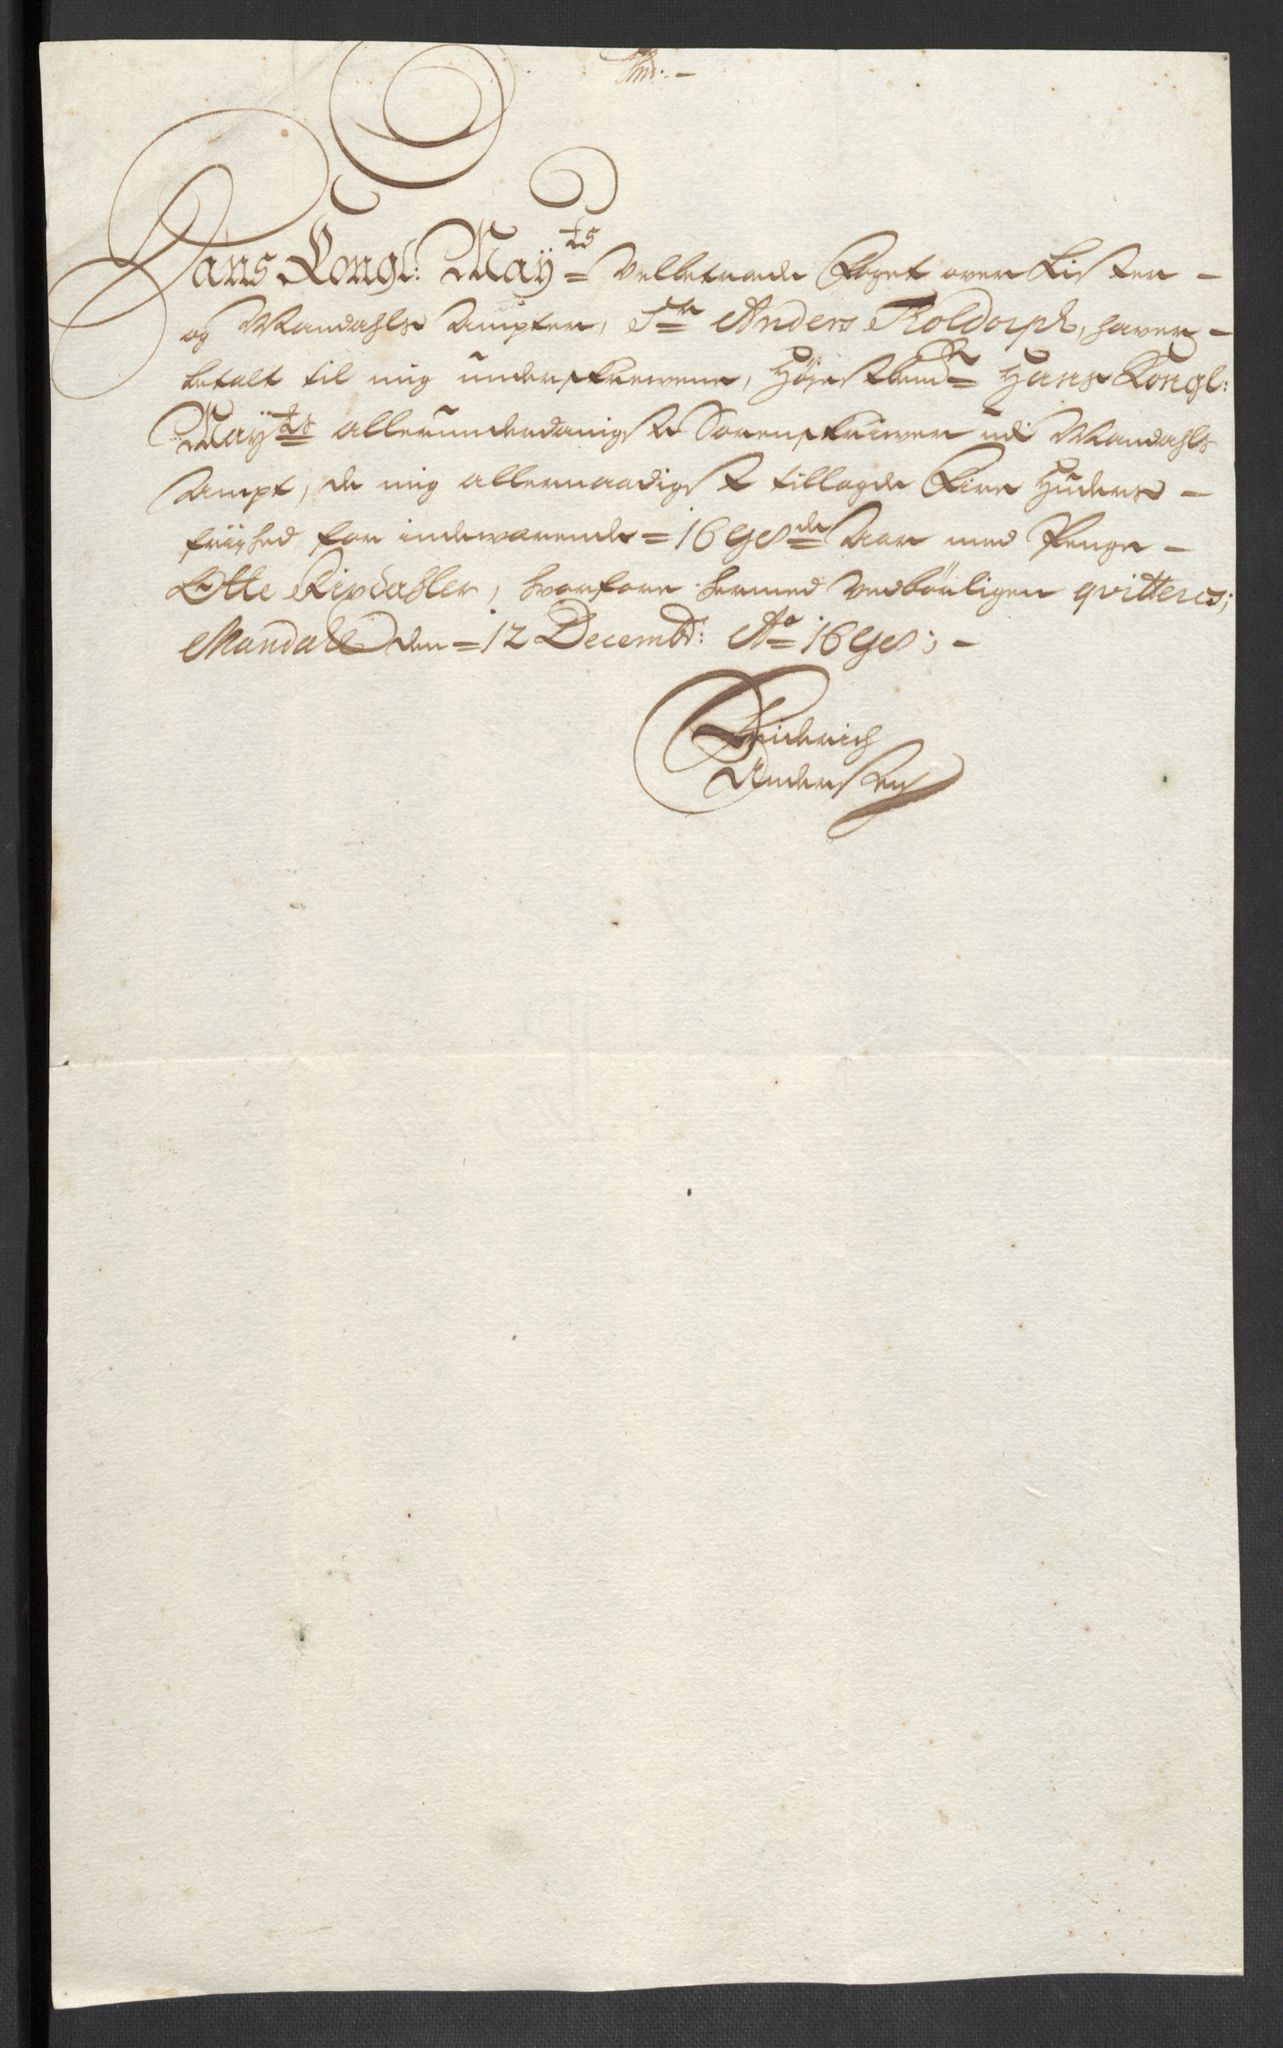 Hans Kongl: Maÿ=ts Velbetroede Foget over Lister –
og Mandahls Ampter, Sr Anders Koldorph, haver –
betalt til mig underskrevene, Højestbemte Hans Kongl:
Maÿts allerunderdanigste Sorenskriver udi Mandahls
Ampt, de mig allernaadigst tillagde Fire Huders –
friihed for indeværende = 1698de Aar med Penge –
Otte Rixdahler, hvorfore hermed Vedbörligen qvitteres;
Mandall den = 12 Decembr: Ao 1698; –
Friderich
Andersen